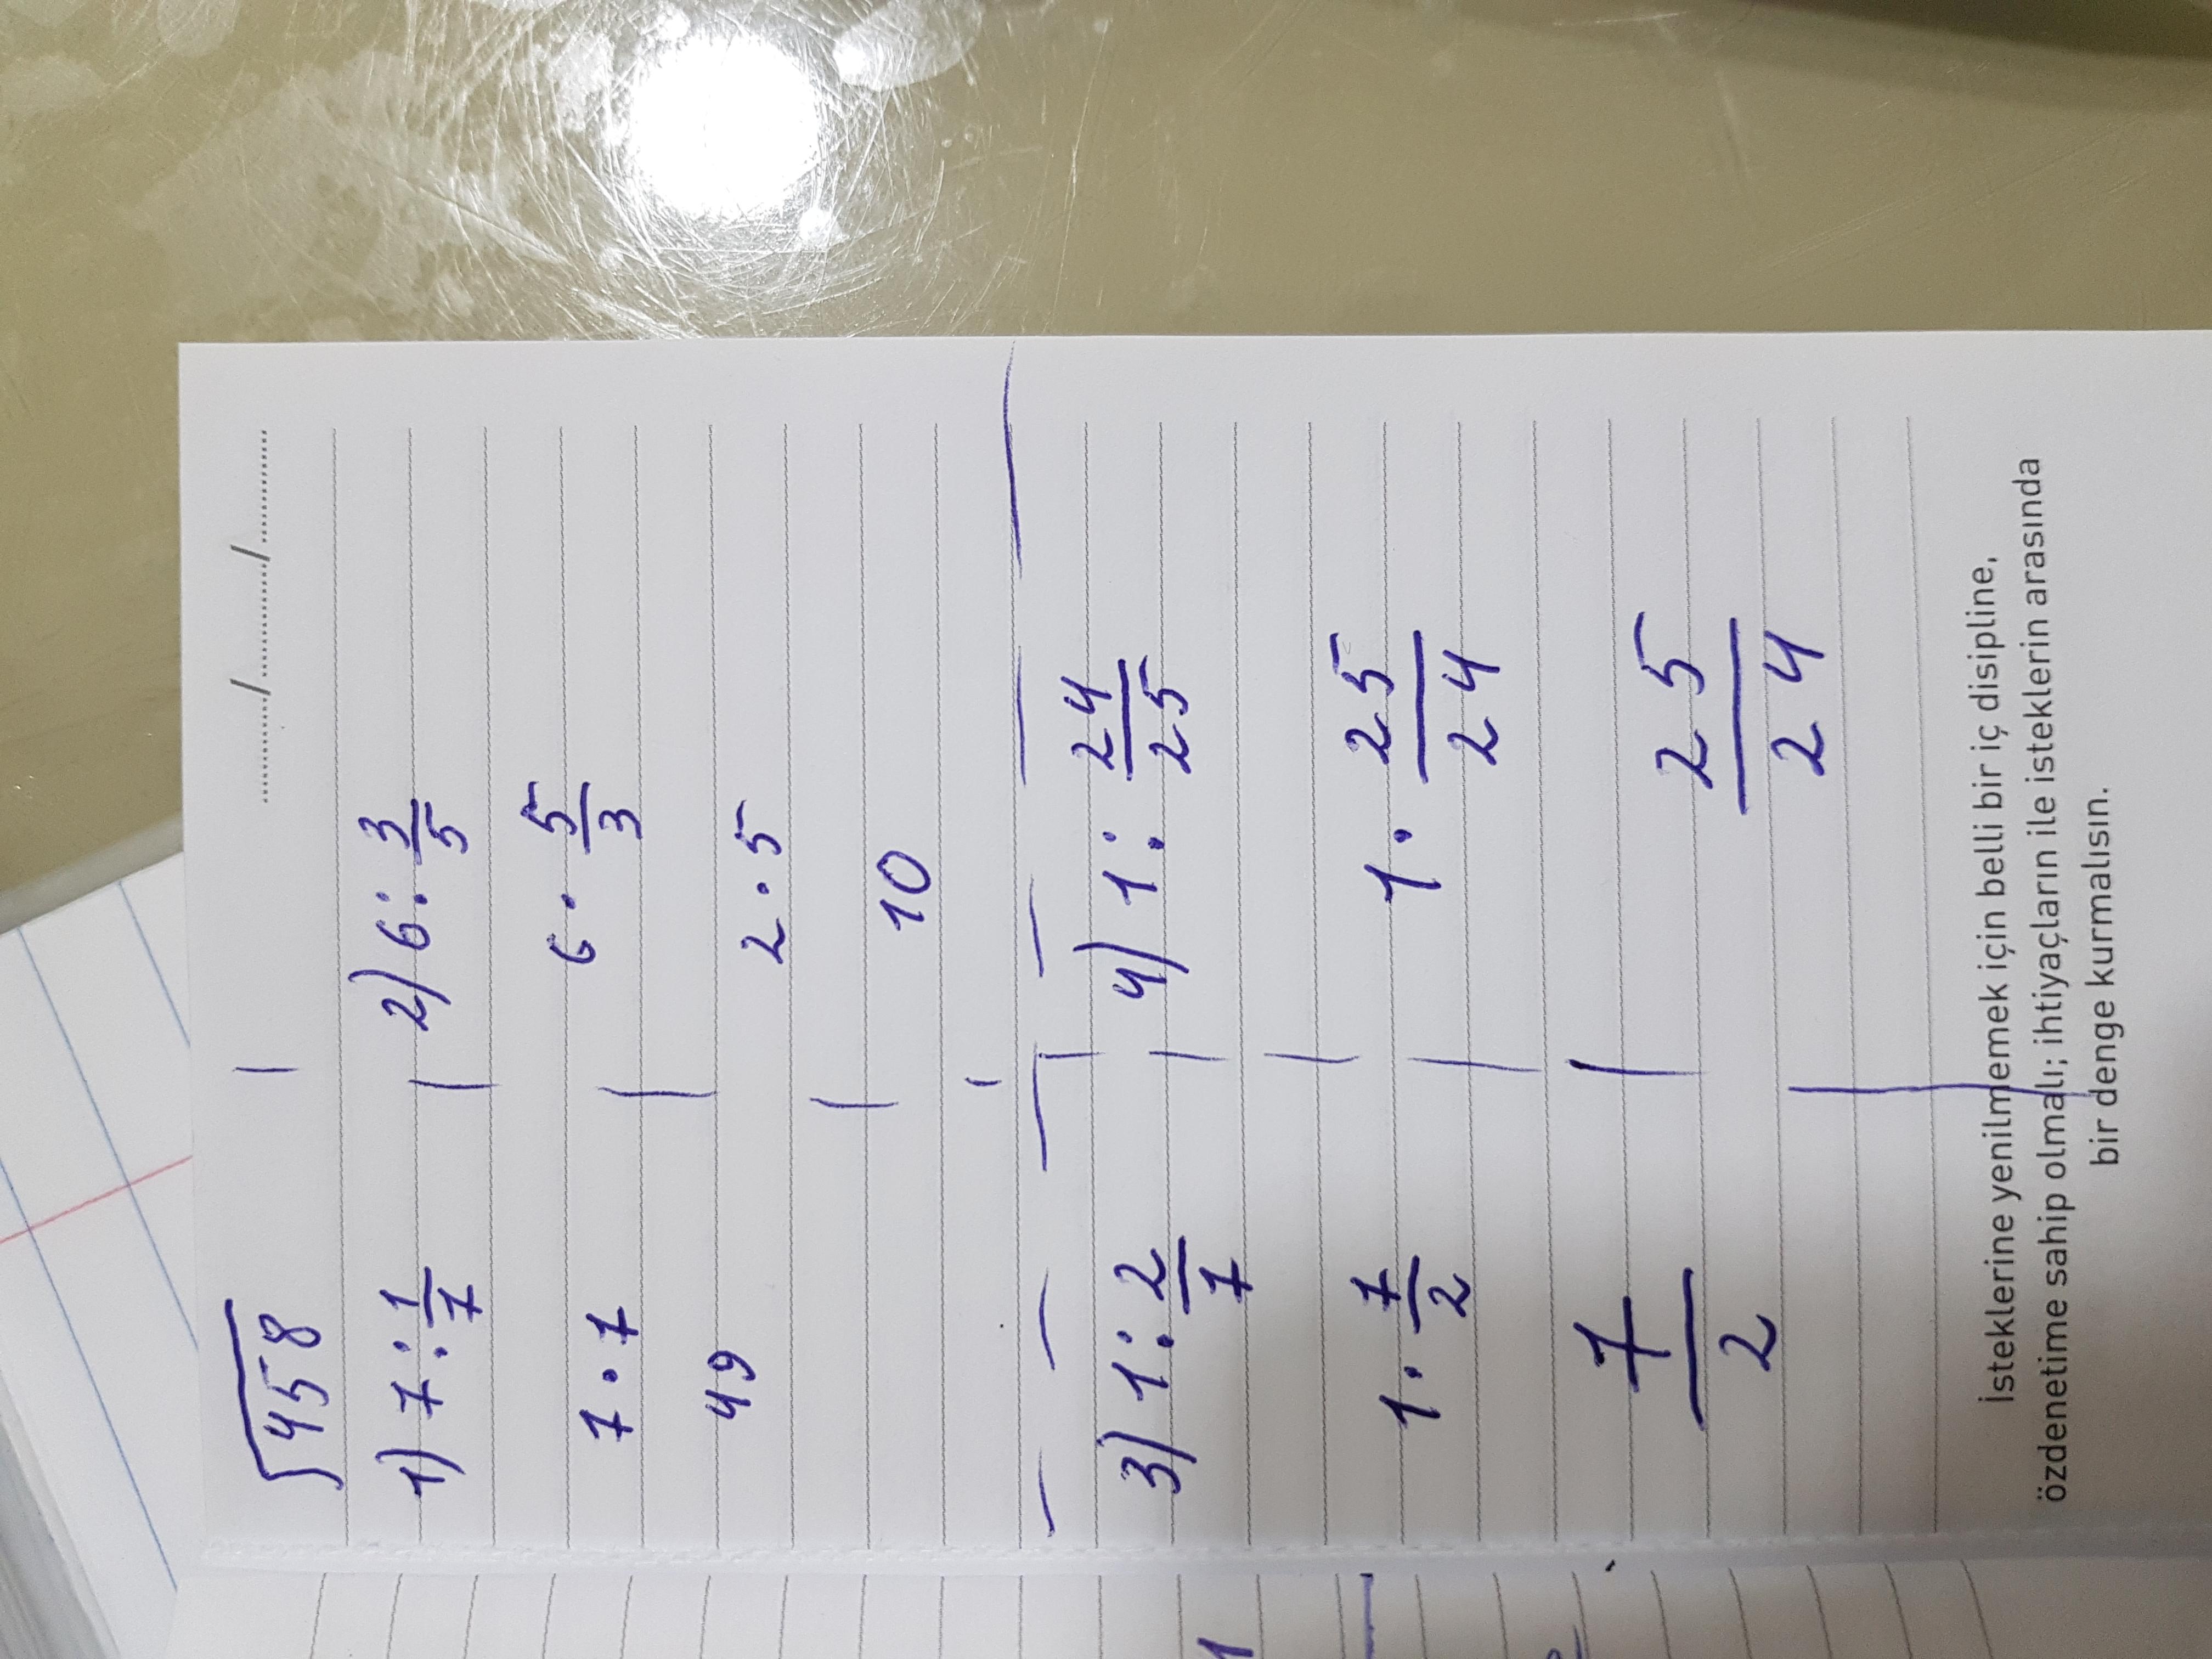 ........../........../..........
√458
1) 7 : 1/7
7 · 7
49
2) 6 : 3/5
6 · 5/3
2 · 5
10
3) 1 : 2/7
1 · 7/2
7/2
4) 1 : 24/25
1 · 25/24
25/24
İsteklerine yenilmemek için belli bir iç disipline,
özdenetime sahip olmalı; ihtiyaçların ile isteklerin arasında
bir denge kurmalısın.
1